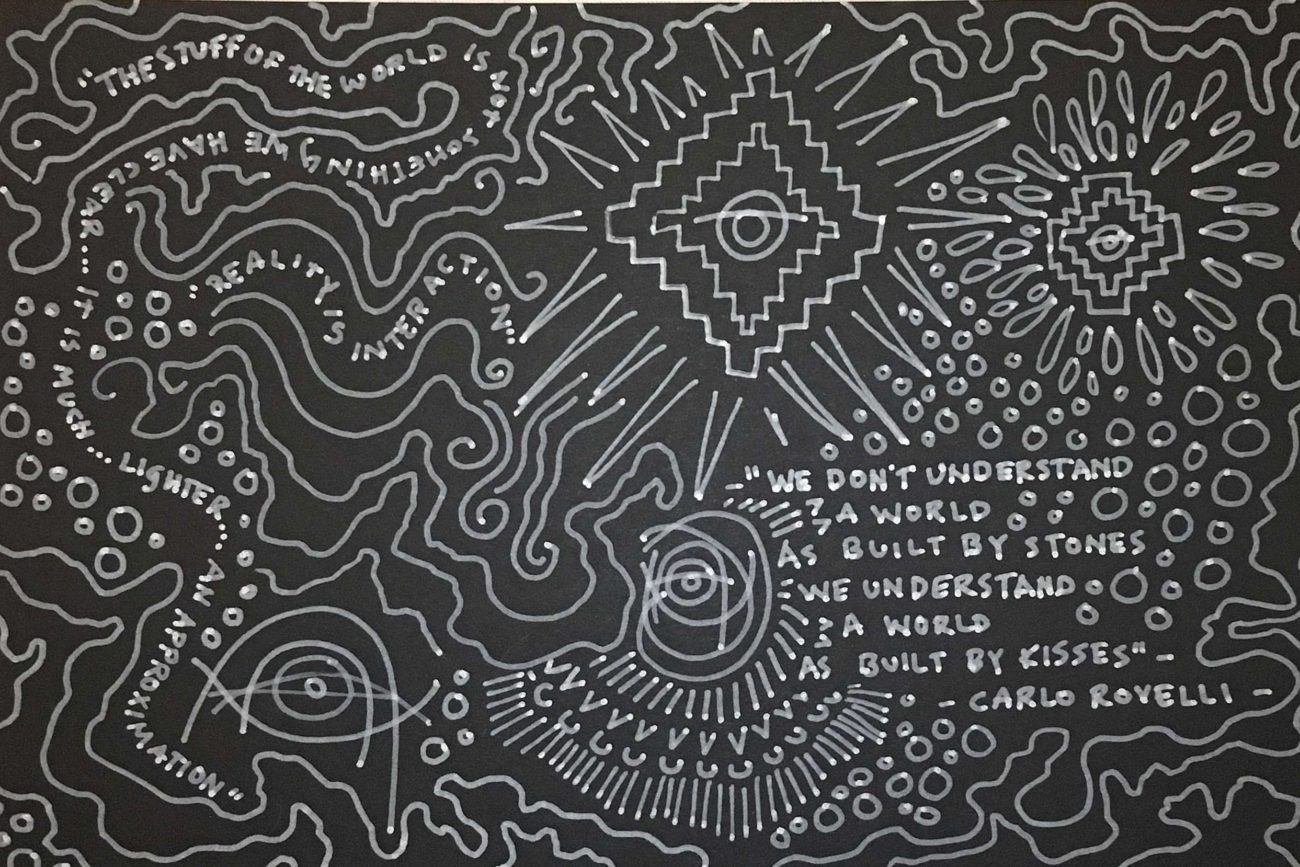 "THE STUFF OF THE WORLD IS NOT SOMETHING WE HAVE CLEAR... IT IS MUCH... LIGHTER... AN APPROXIMATION"
"REALITY IS INTERACTION"
- "WE DON'T UNDERSTAND
A WORLD
AS BUILT BY STONES
WE UNDERSTAND
A WORLD
AS BUILT BY KISSES" -
- CARLO ROVELLI -